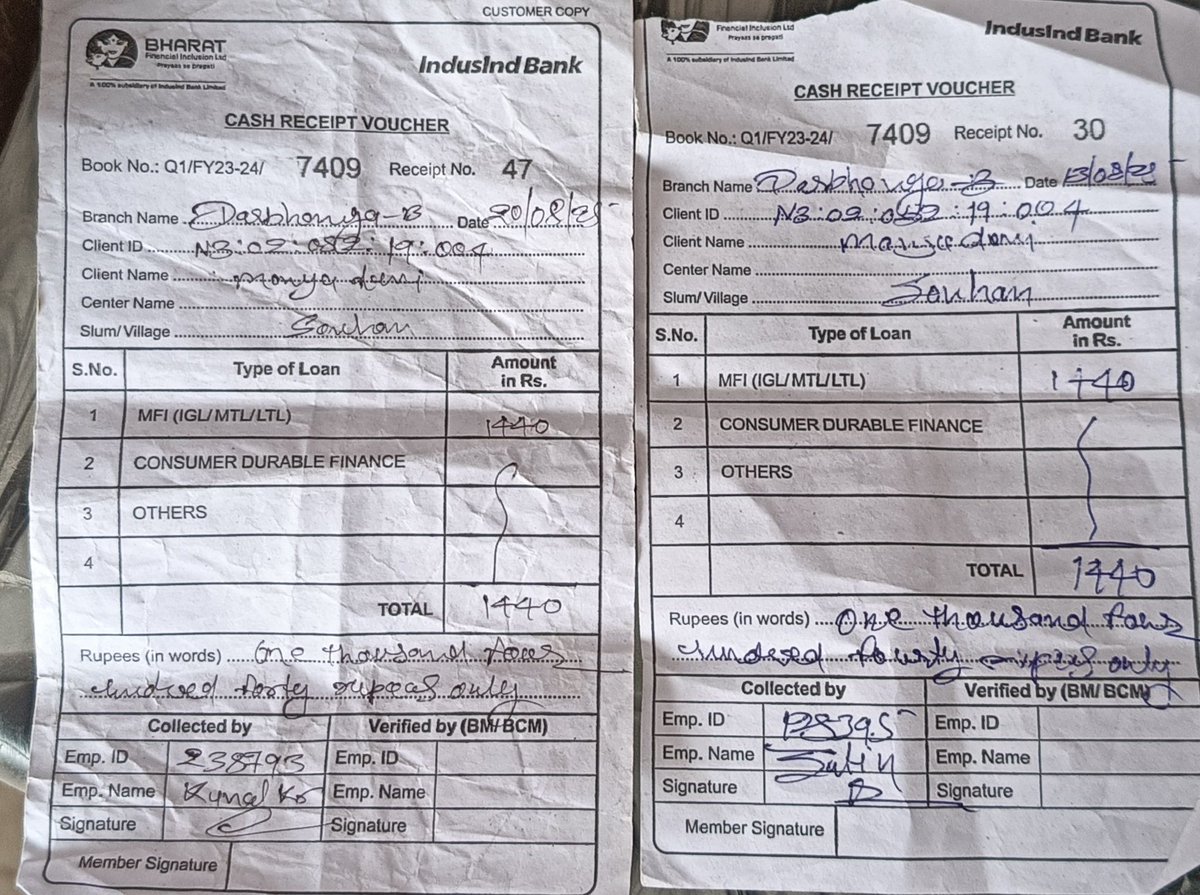 CUSTOMER COPY
BHARAT
Financial Inclusion Ltd
Prayaas se pragati
A 100% subsidiary of IndusInd Bank Limited
IndusInd Bank
CASH RECEIPT VOUCHER
Book No.: Q1/FY23-24/ 7409 Receipt No. 47
Branch Name Darbhanga-B Date 20/08/25
Client ID N3:02:082:19:004
Client Name devi
Center Name
Slum/Village Souhan
S.No. Type of Loan Amount in Rs.
1 MFI (IGL/MTL/LTL) 1440
2 CONSUMER DURABLE FINANCE
3 OTHERS
4
TOTAL 1440
Rupees (in words) One thousand four
hundred forty rupees only
Collected by Verified by (BM/BCM)
Emp. ID 238793 Emp. ID
Emp. Name Kunal Kr Emp. Name
Signature Signature
Member Signature
Financial Inclusion Ltd
Prayaas se pragati
A 100% subsidiary of IndusInd Bank Limited
IndusInd Bank
CASH RECEIPT VOUCHER
Book No.: Q1/FY23-24/ 7409 Receipt No. 30
Branch Name Darbhanga-B Date 13/08/25
Client ID N3:02:082:19:004
Client Name devi
Center Name
Slum/Village Souhan
S.No. Type of Loan Amount in Rs.
1 MFI (IGL/MTL/LTL) 1440
2 CONSUMER DURABLE FINANCE
3 OTHERS
4
TOTAL 1440
Rupees (in words) One thousand four
hundred fourty rupees only
Collected by Verified by (BM/BCM)
Emp. ID Emp. ID
Emp. Name Emp. Name
Signature Signature
Member Signature